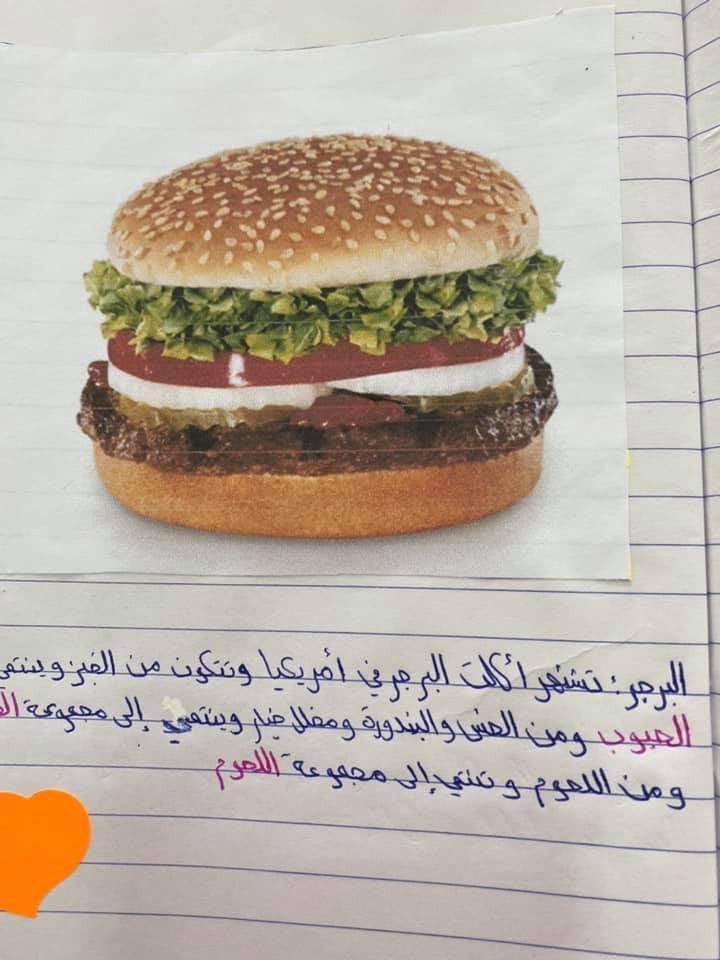 البرجر: تشتهر أكلت البرجر في أمريكيا وتتكون من الخبز وينتمي
الحبوب ومن الخس والبندورة ومخلل خيار وينتمي إلى مجموعة
ومن اللحوم وتنتمي إلى مجموعة اللحوم